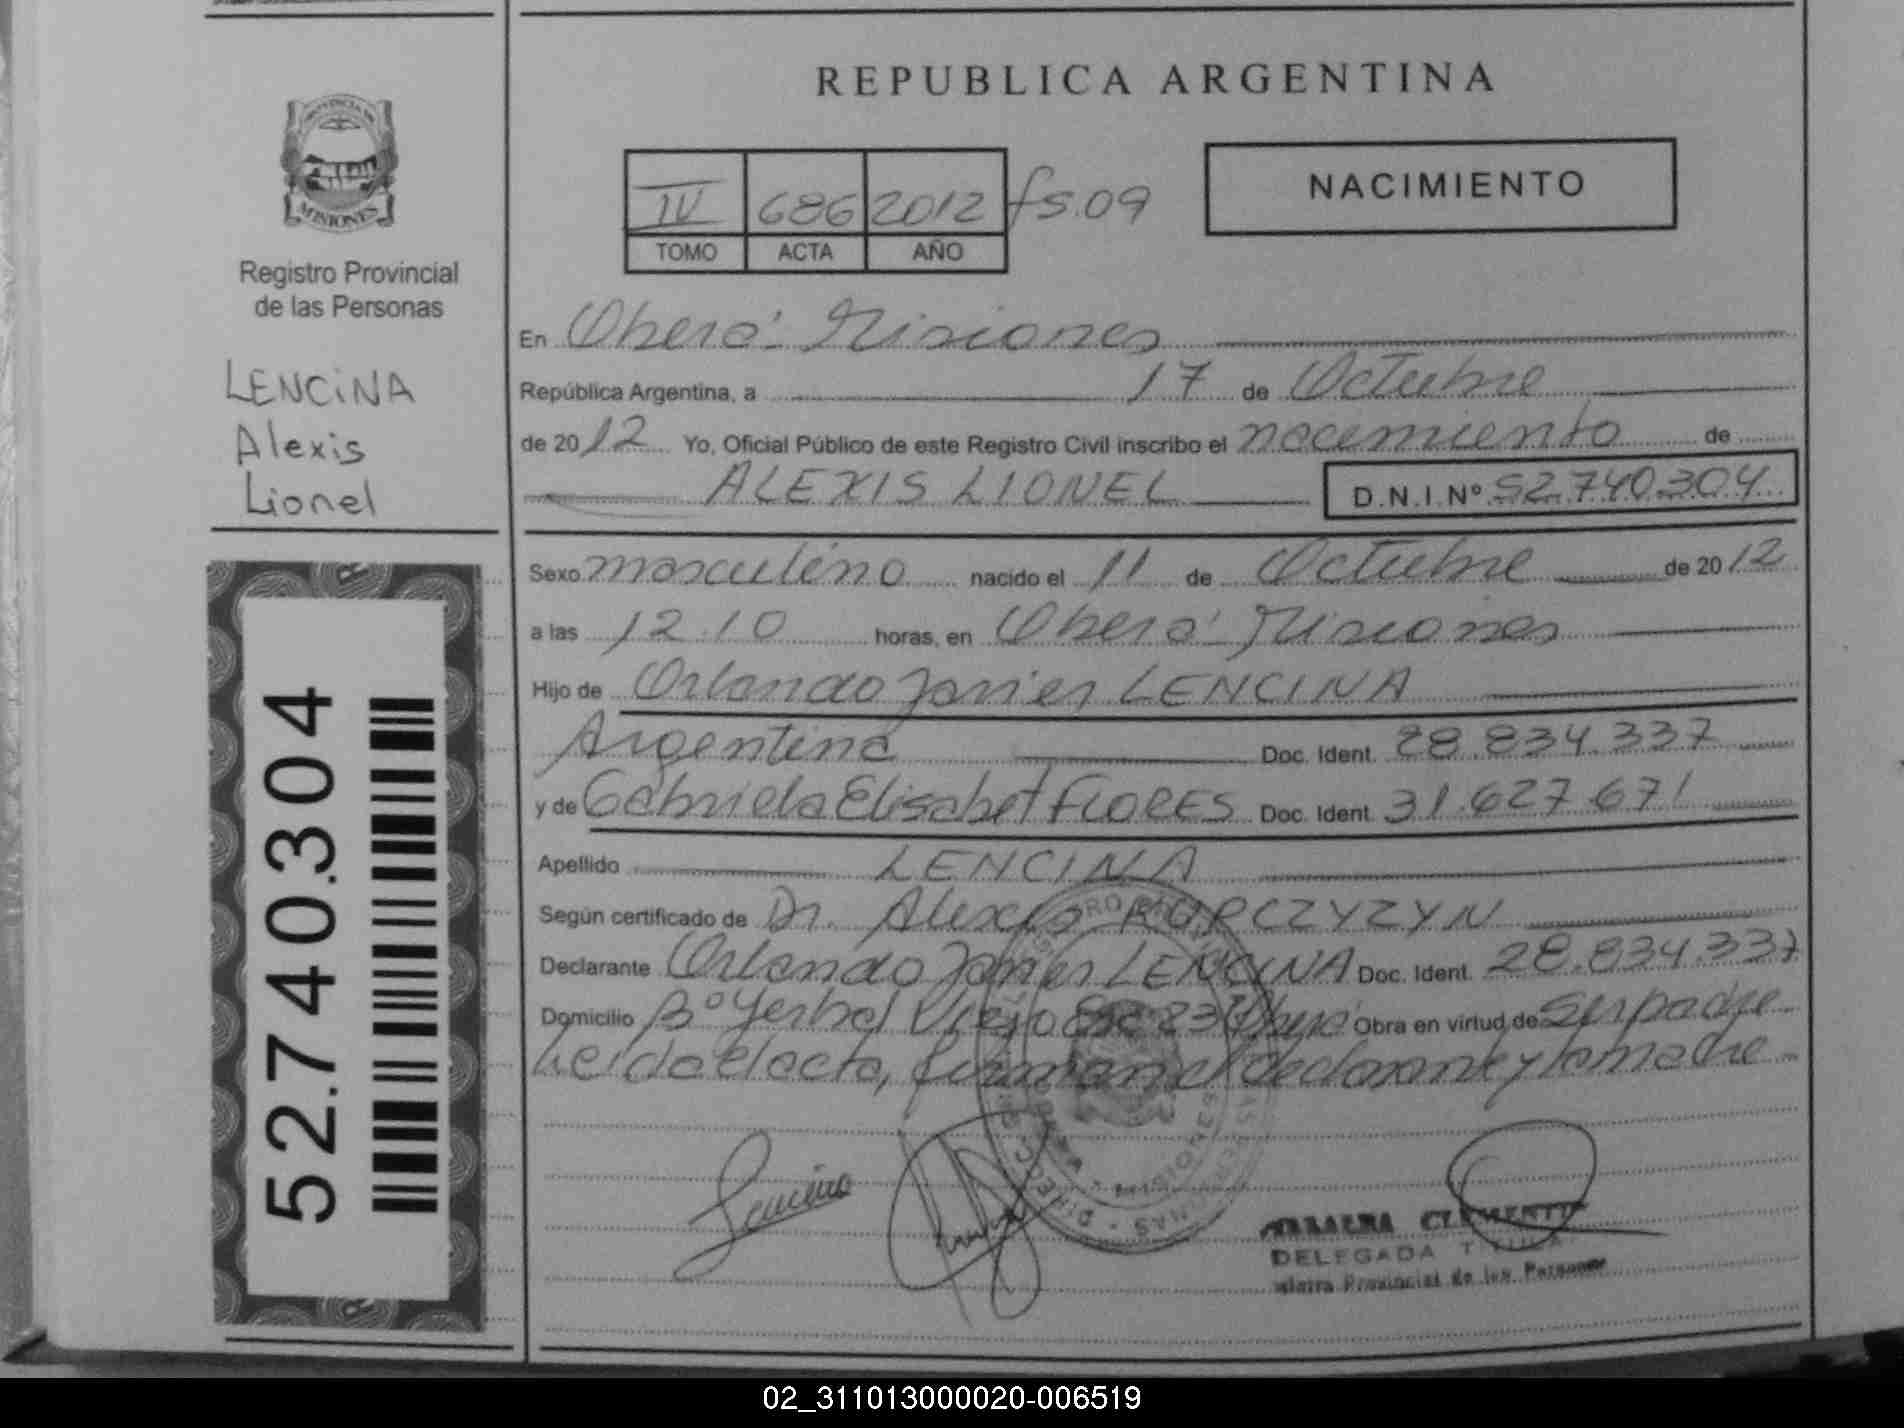 REPUBLICA ARGENTINA
PROVINCIA DE
MISIONES
Registro Provincial
de las Personas
LENCINA
Alexis
Lionel
IV 686 2012 fs.09
TOMO ACTA AÑO
NACIMIENTO
En Oberá - Misiones
República Argentina, a 17 de Octubre
de 2012 Yo, Oficial Público de este Registro Civil inscribo el nacimiento de
ALEXIS LIONEL D.N.I.Nº 52.740.304
Sexo masculino nacido el 11 de Octubre de 2012
a las 12.10 horas, en Oberá - Misiones
Hijo de Orlando Javier LENCINA
Argentina Doc. Ident. 28.834.337
y de Gabriela Elisabet FLORES Doc. Ident. 31.627.671
Apellido LENCINA
Según certificado de Dr. Alexis
Declarante Orlando Javier LENCINA Doc. Ident. 28.834.337
Domicilio Bº Yerbal Viejo 237 Oberá Obra en virtud de ser padre
Leida el acta, firman el declarante y la madre
52.740.304
Lencina
CLEMENTE
DELEGADA TITULAR
Provincial de las Personas
02_311013000020-006519